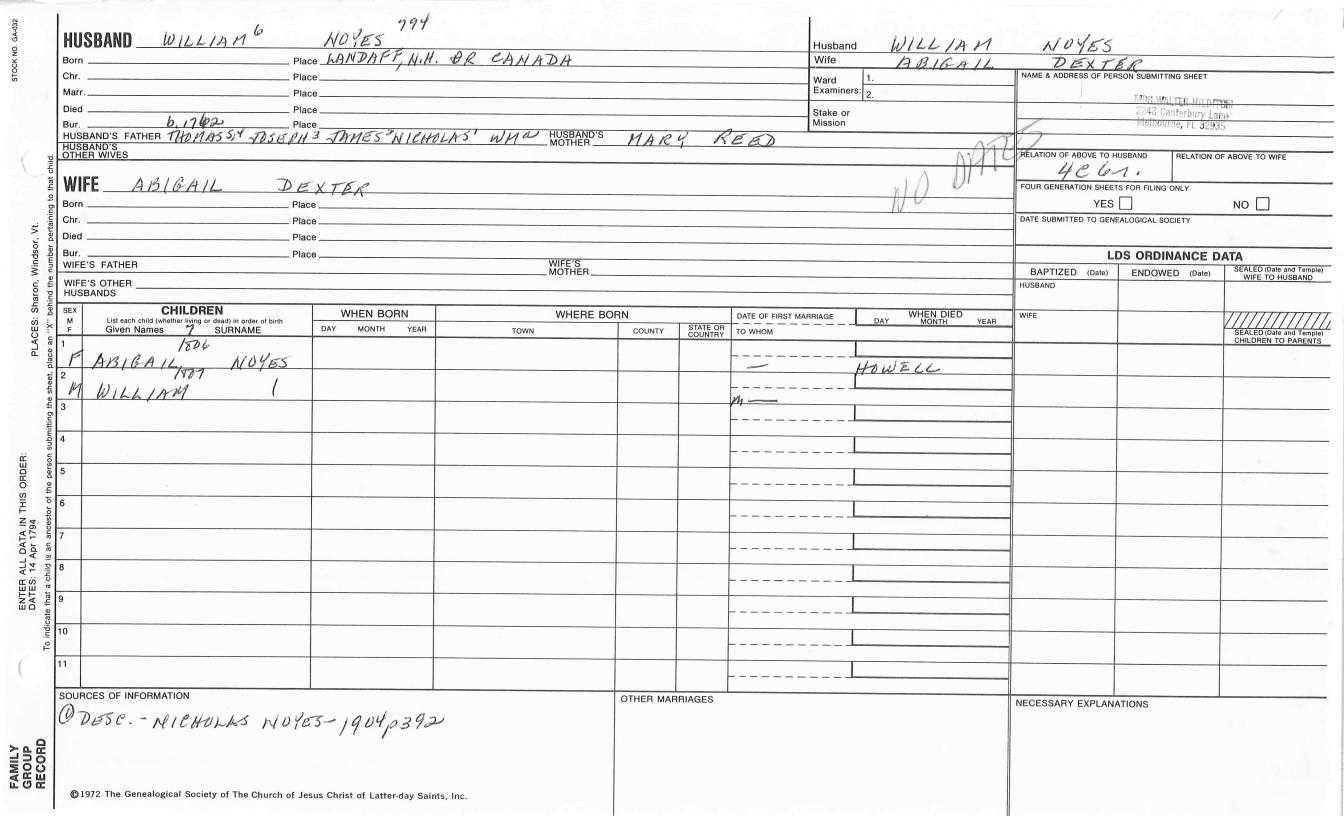 STOCK NO. GA-032
HUSBAND WILLIAM 6 NOYES 794
Born Place LANDAFF, N.H. OR CANADA
Chr. Place
Marr. Place
Died Place
Bur. b. 1762 Place
HUSBAND'S FATHER THOMAS 5,4 JOSEPH 3 JAMES 2 NICHOLAS 1 WM HUSBAND'S MOTHER MARY REED
HUSBAND'S OTHER WIVES
Husband WILLIAM NOYES
Wife ABIGAIL DEXTER
Ward Examiners: 1.
2.
Stake or Mission
NAME & ADDRESS OF PERSON SUBMITTING SHEET
MRS WALTER
2243 Canterbury Lane
Melbourne, FL 32935
NO DATES
RELATION OF ABOVE TO HUSBAND RELATION OF ABOVE TO WIFE
4C 6r.
FOUR GENERATION SHEETS FOR FILING ONLY
YES NO
DATE SUBMITTED TO GENEALOGICAL SOCIETY
WIFE ABIGAIL DEXTER
Born Place
Chr. Place
Died Place
Bur. Place
WIFE'S FATHER WIFE'S MOTHER
WIFE'S OTHER HUSBANDS
LDS ORDINANCE DATA
BAPTIZED (Date) ENDOWED (Date) SEALED (Date and Temple) WIFE TO HUSBAND
HUSBAND
WIFE
SEALED (Date and Temple) CHILDREN TO PARENTS
SEX M F
CHILDREN
List each child (whether living or dead) in order of birth
Given Names 7 SURNAME
WHEN BORN
DAY MONTH YEAR
WHERE BORN
TOWN COUNTY STATE OR COUNTRY
DATE OF FIRST MARRIAGE
TO WHOM
WHEN DIED
DAY MONTH YEAR
1 1806
F ABIGAIL NOYES — HOWELL
2 1807
M WILLIAM M —
3
4
5
6
7
8
9
10
11
SOURCES OF INFORMATION
① DESC. - NICHOLAS NOYES - 1904 p392
OTHER MARRIAGES
NECESSARY EXPLANATIONS
©1972 The Genealogical Society of The Church of Jesus Christ of Latter-day Saints, Inc.
PLACES: Sharon, Windsor, Vt.
To indicate that a child is an ancestor of the person submitting the sheet, place an "X" behind the number pertaining to that child.
ENTER ALL DATA IN THIS ORDER:
DATES: 14 Apr 1794
FAMILY GROUP RECORD